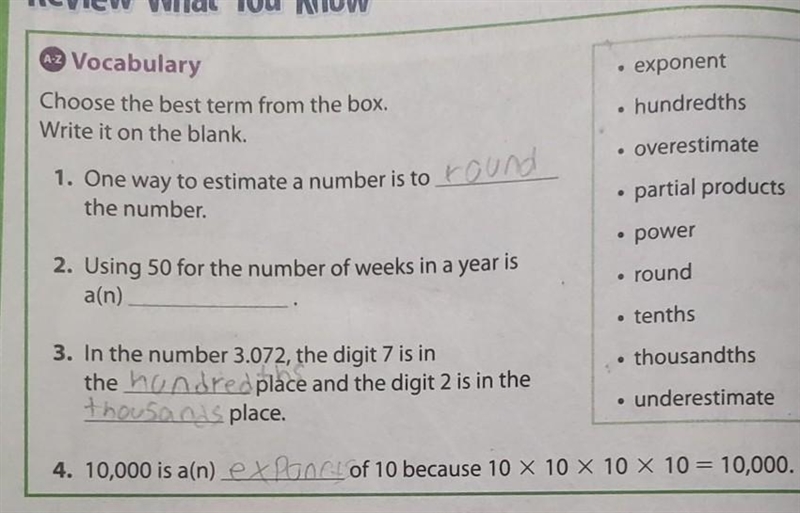 Review What You Know
A-Z Vocabulary
Choose the best term from the box.
Write it on the blank.
1. One way to estimate a number is to round
the number.
2. Using 50 for the number of weeks in a year is
a(n) ____________ .
3. In the number 3.072, the digit 7 is in
the hundredths place and the digit 2 is in the
thousands place.
4. 10,000 is a(n) of 10 because 10 × 10 × 10 × 10 = 10,000.
• exponent
• hundredths
• overestimate
• partial products
• power
• round
• tenths
• thousandths
• underestimate